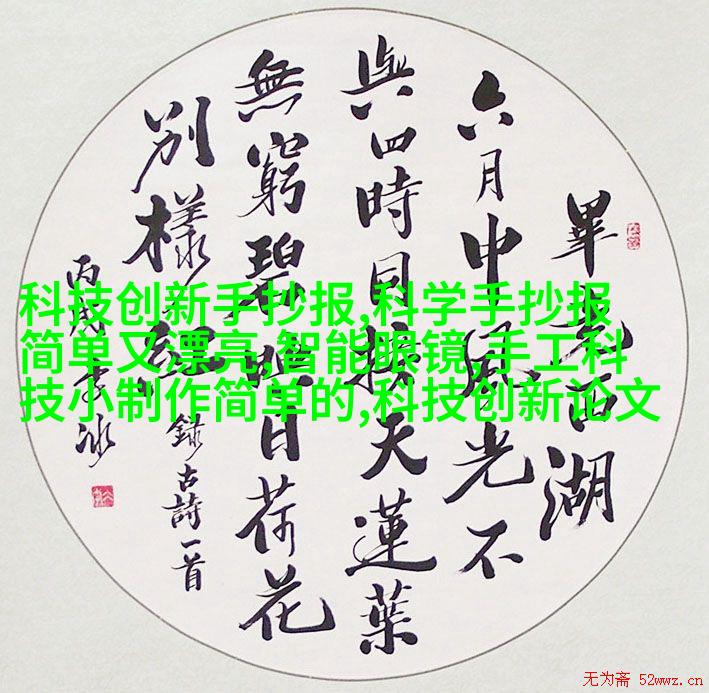 畢竟西湖
六月中風光不
與四時同接天蓮葉
無窮碧映日荷花
別樣紅 錄古詩一首
丙戌李冰
科技创新手抄报,科学手抄报
简单又漂亮,智能眼镜,手工科
技小制作简单的,科技创新论文
无为斋 52wwz.cn